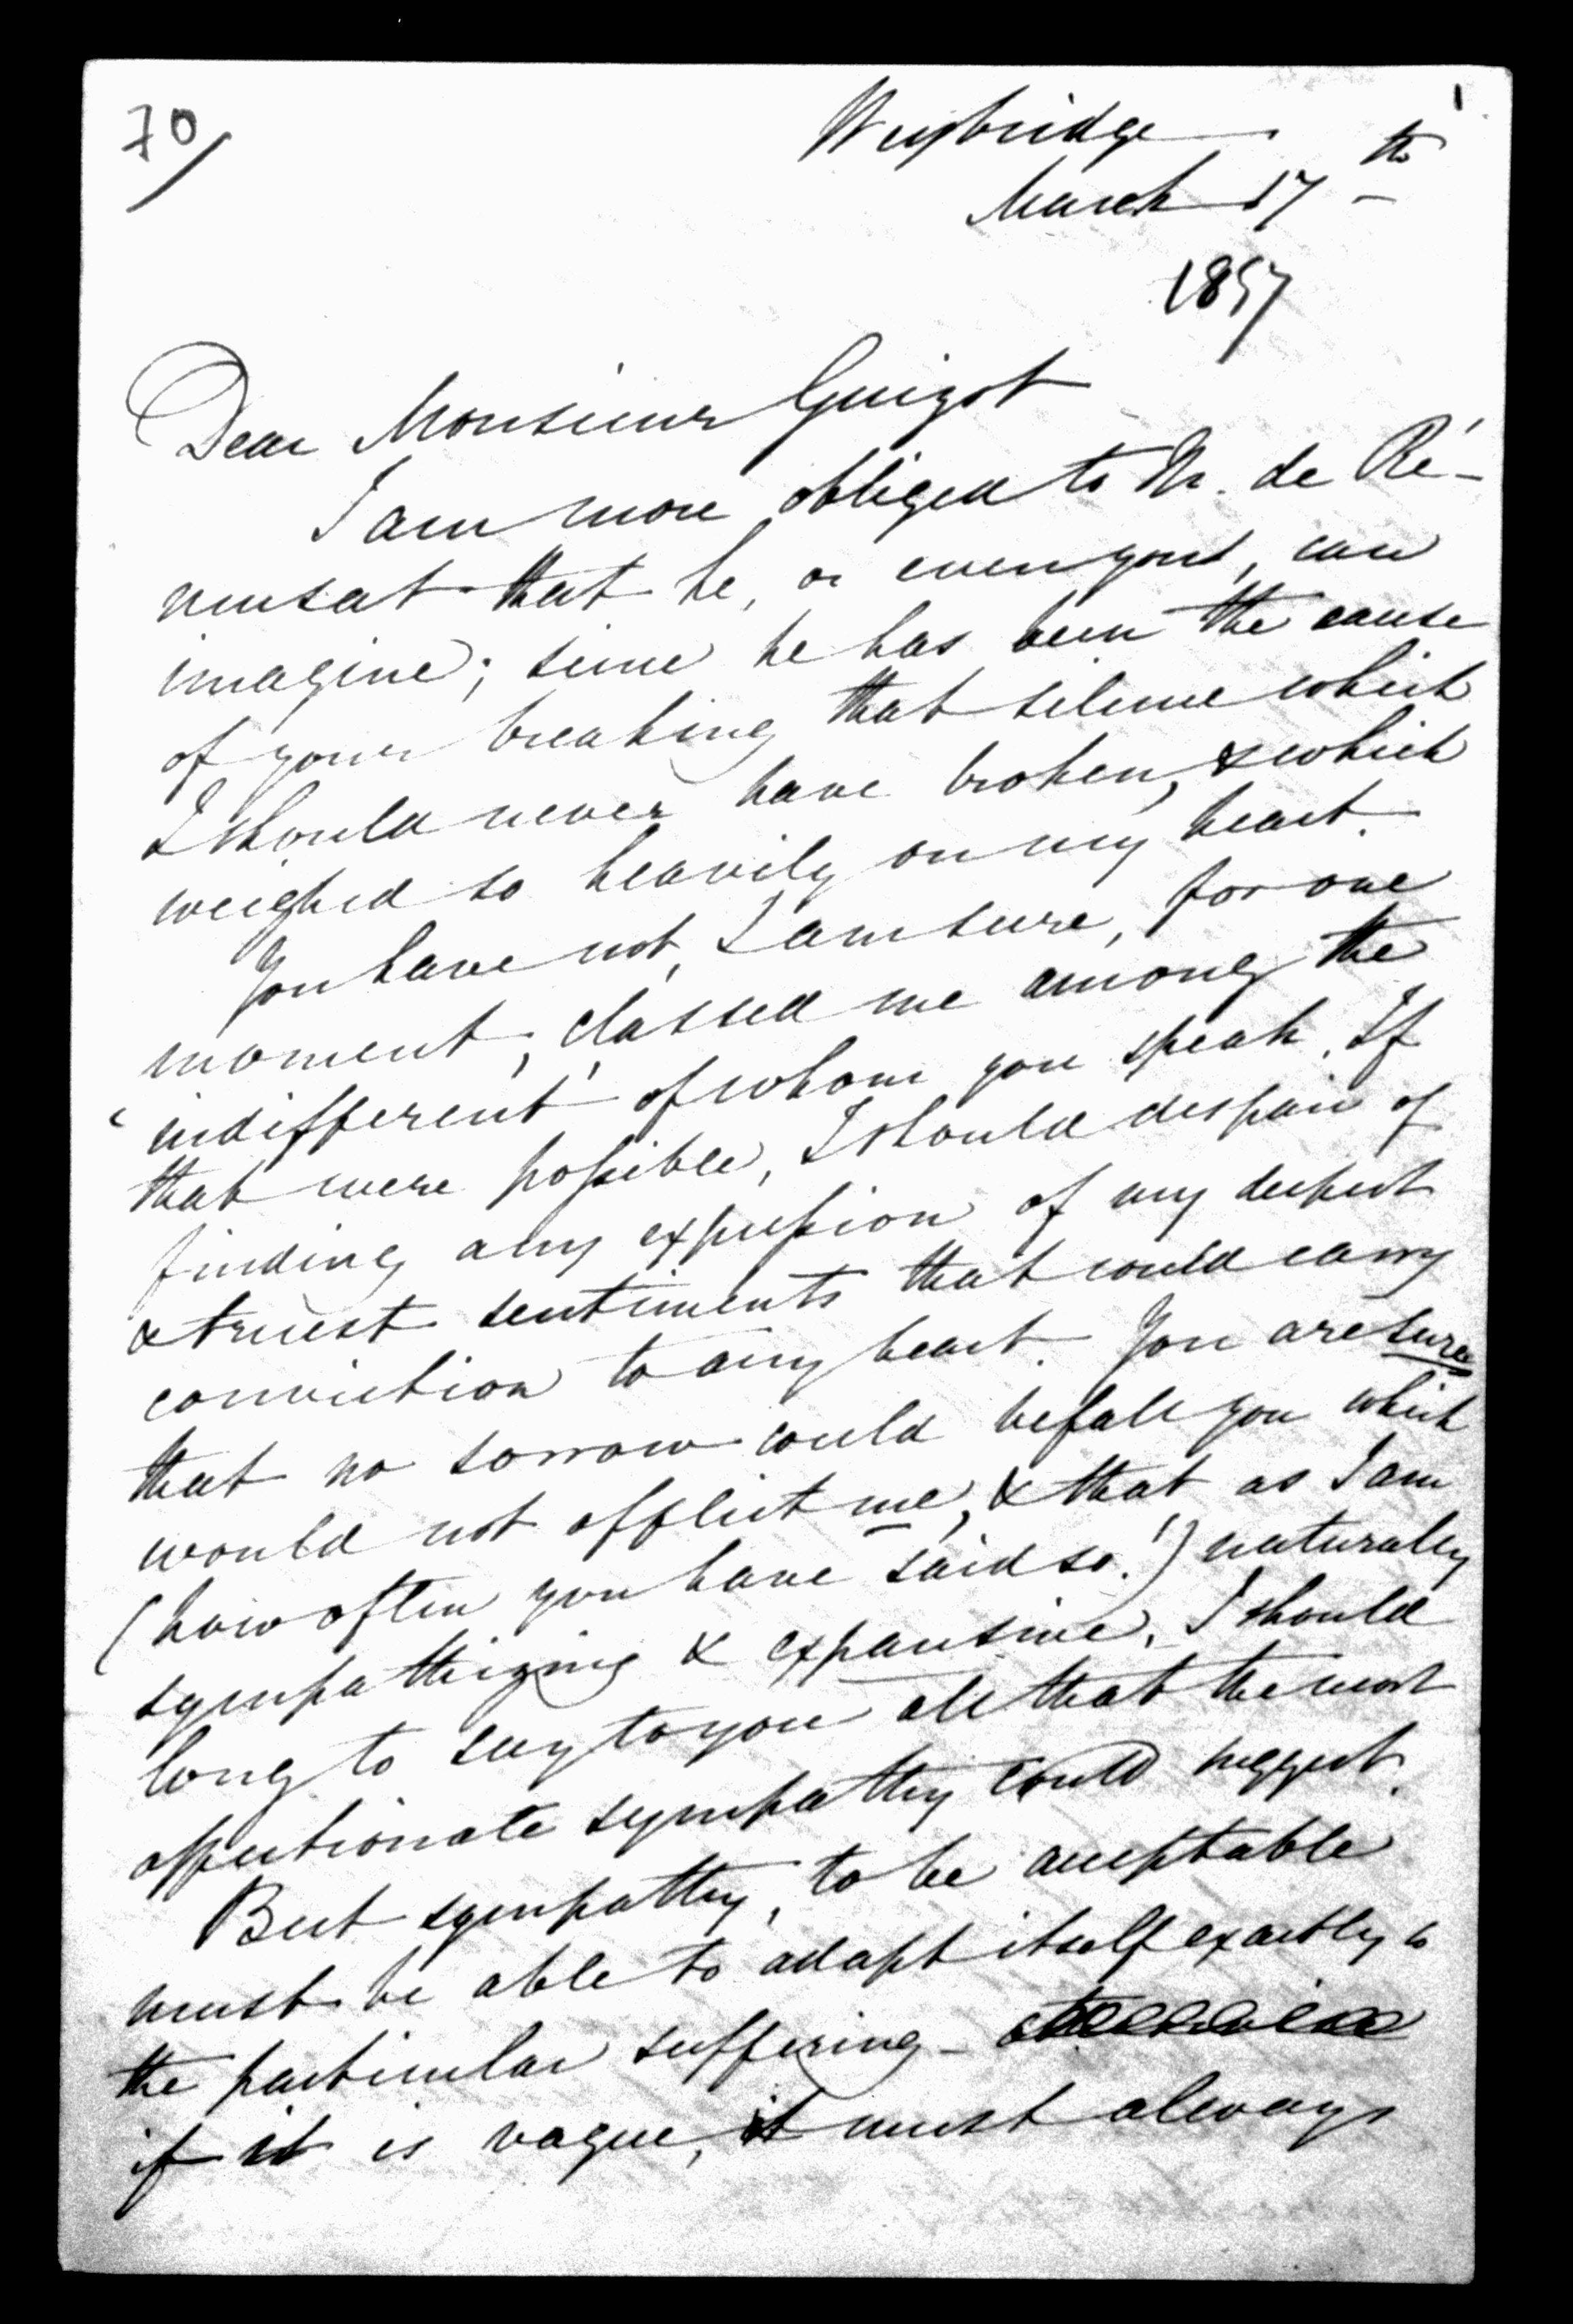 70/
Weybridge
March 17th
1857
Dear Monsieur Guizot
I am more obliged to M. de Ré-
musat that he, or even you, can
imagine; since he has been the cause
of your breaking that silence which
I should never have broken, & which
weighed so heavily on my heart.
You have not, I am sure, for one
moment, classed me among the
'indifferent' of whom you speak. If
that were possible, I should despair of
finding any expression of my deepest
& truest sentiments that could carry
conviction to any heart. You are sure
that no sorrow could befall you which
would not afflict me, & that as I am
(how often you have said so!) naturally
sympathizing & expansive, I should
long to say to you all that the most
affectionate sympathy could suggest.
But sympathy, to be acceptable
must be able to adapt itself exactly to
the particular suffering -
if it is vague, it must always